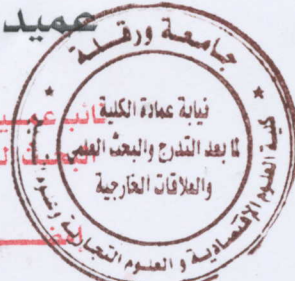 عميد
جامعة ورقلة
نائب عميد
نيابة عمادة الكلية
لما بعد التدرج والبحث العلمي
والعلاقات الخارجية
كلية العلوم الإقتصادية و العلوم التجارية